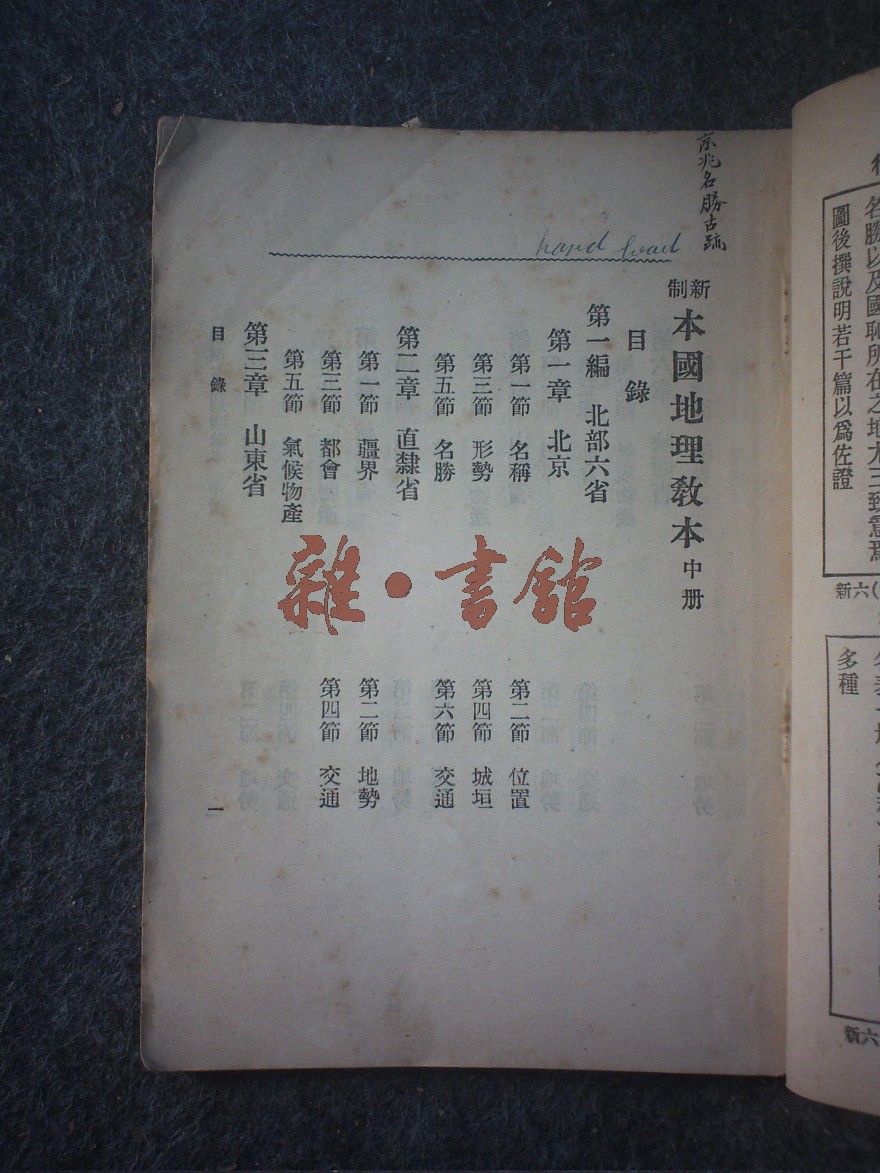 京兆名勝古蹟
hand
新制 本國地理敎本 中册
目錄
第一編 北部六省
第一章 北京
第一節 名稱 第二節 位置
第三節 形勢 第四節 城垣
第五節 名勝 第六節 交通
第二章 直隸省
第一節 疆界 第二節 地勢
第三節 都會 第四節 交通
第五節 氣候物產
第三章 山東省
目錄 一
雜·書館
名勝以及國恥所在之地尤三致意焉
圖後撰說明若干篇以爲佐證
新六
多種
新六